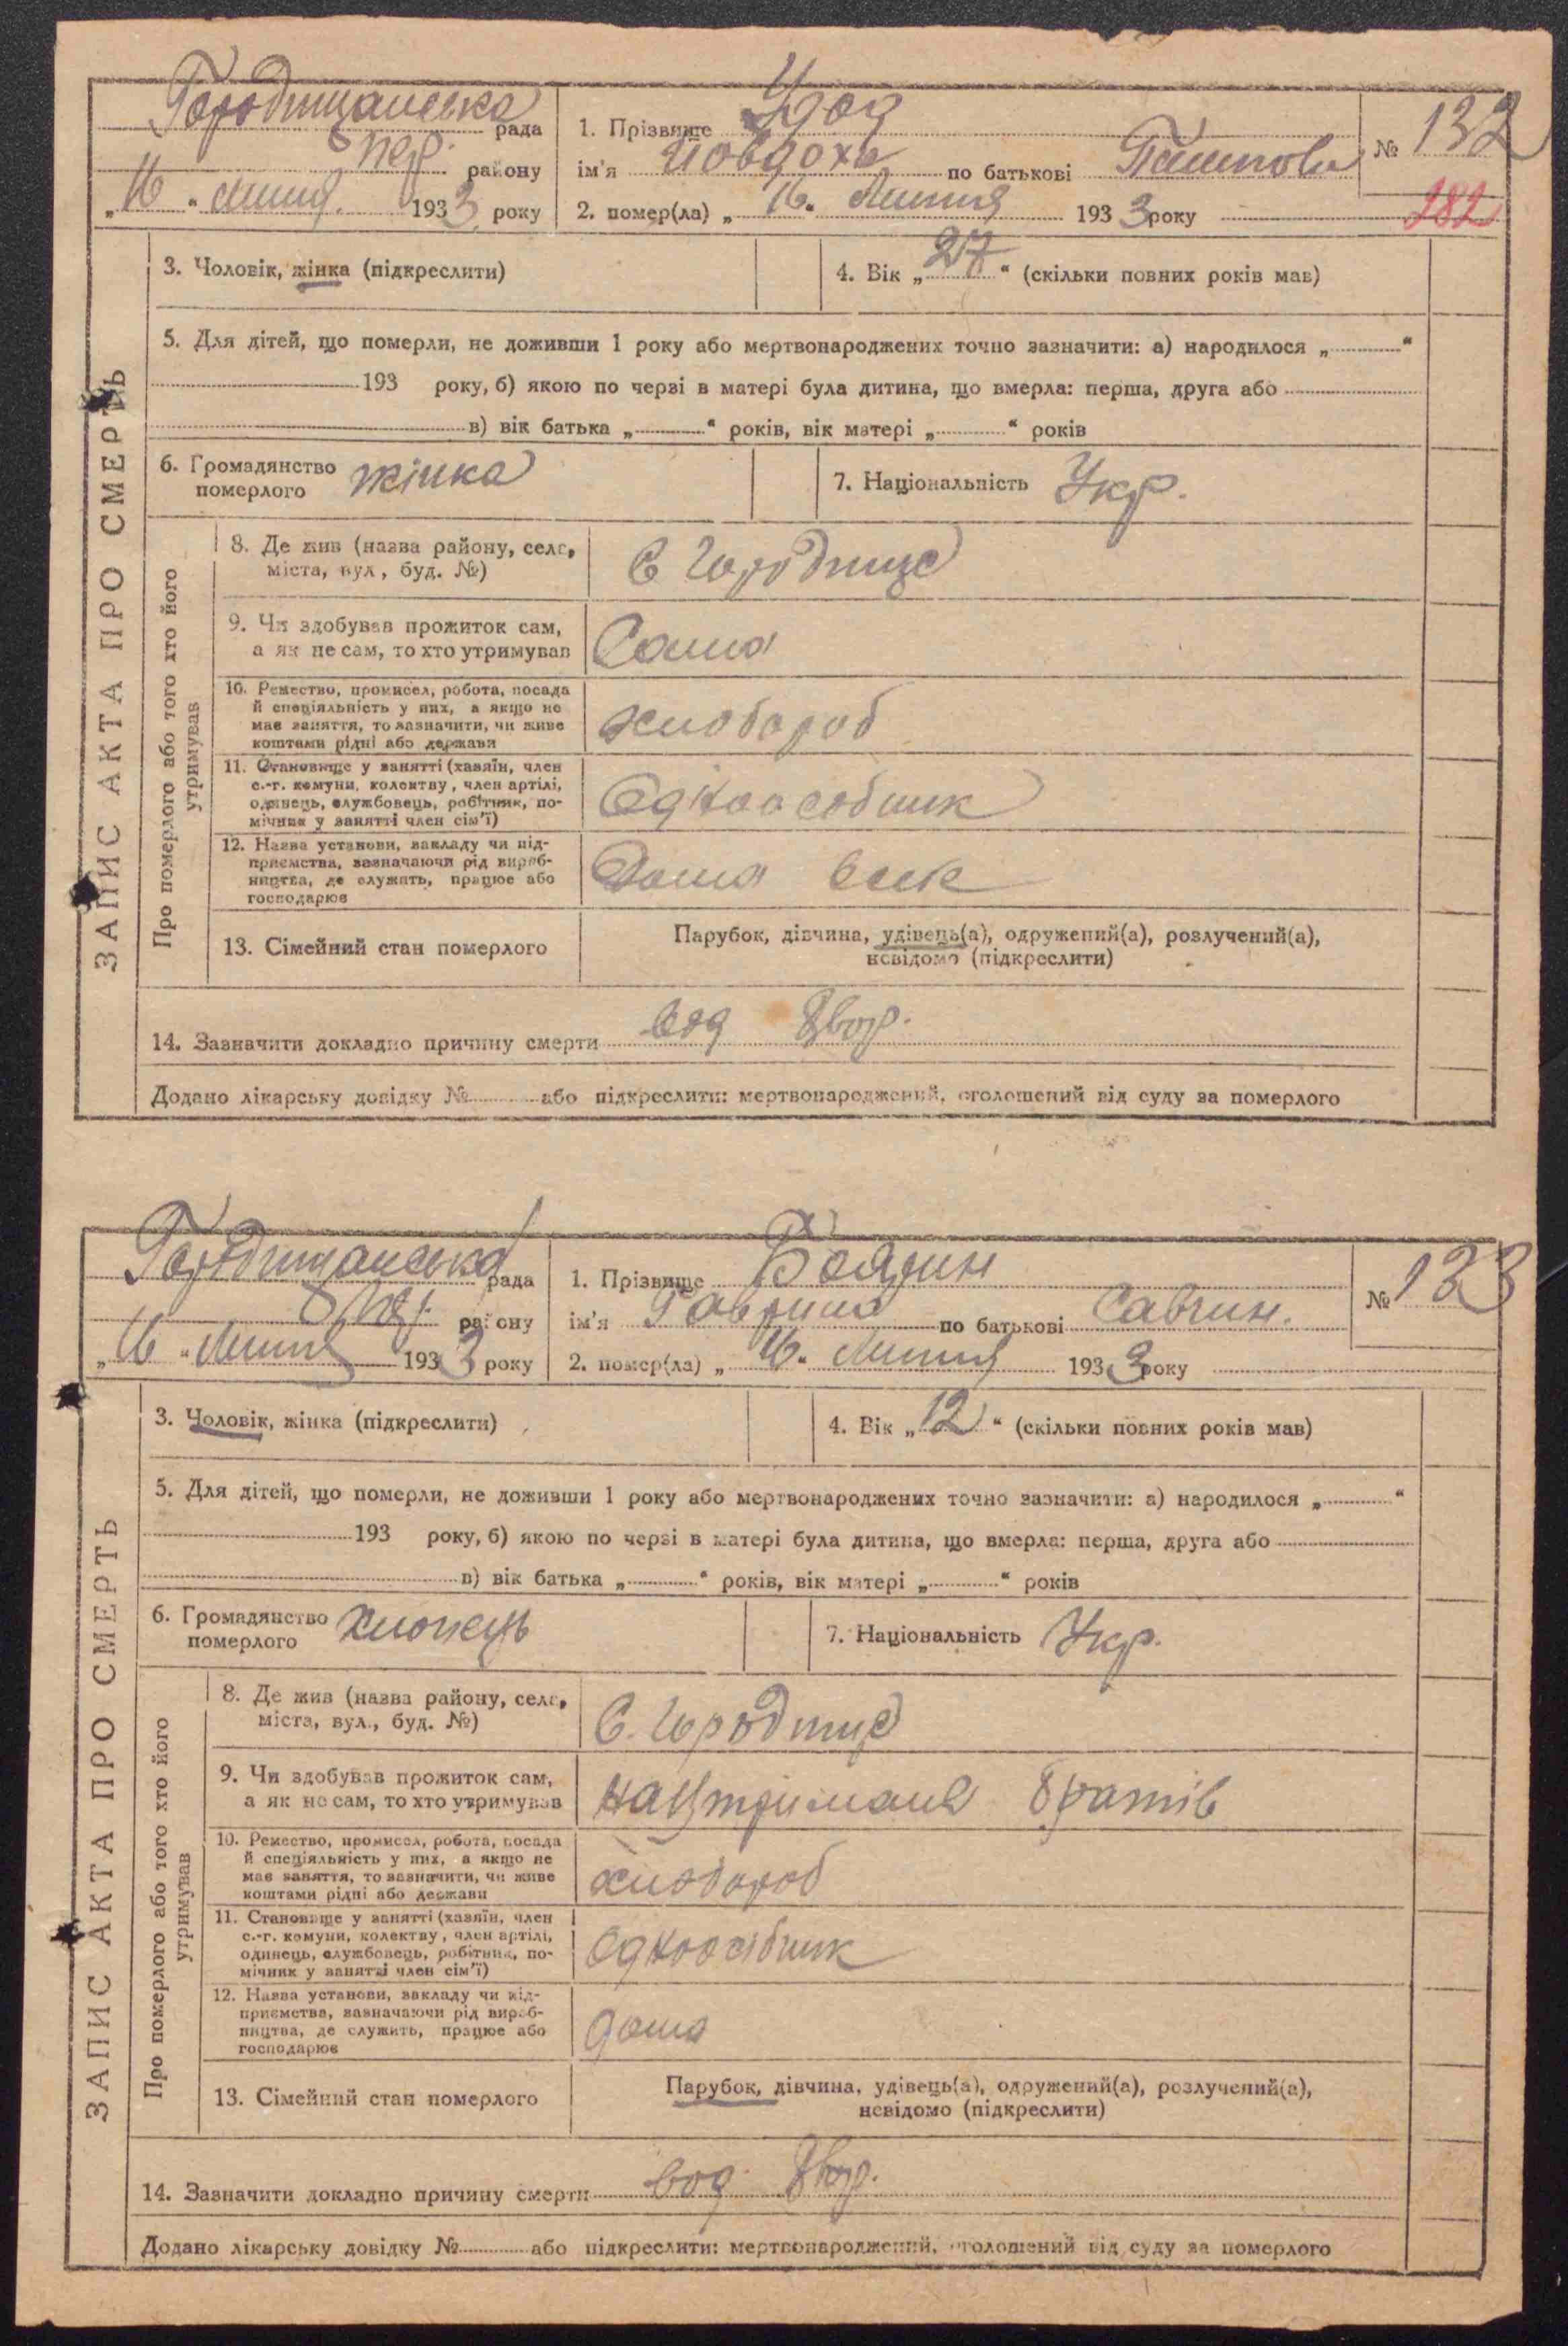 Городищанська рада
пер. району
„16“ Липня 1933 року
1. Прізвище Удод
ім'я Йовдоха по батькові
2. помер(ла) „16“ Липня 1933 року
№ 132
282
ЗАПИС АКТА ПРО СМЕРТЬ
3. Чоловік, жінка (підкреслити)
4. Вік „27“ (скільки повних років мав)
5. Для дітей, що померли, не доживши 1 року або мертвонароджених точно зазначити: а) народилося „ “
193 року, б) якою по черзі в матері була дитина, що вмерла: перша, друга або
в) вік батька „ “ років, вік матері „ “ років
6. Громадянство померлого жінка
7. Національність Укр.
Про померлого або того хто його утримував
8. Де жив (назва району, села,
міста, вул., буд. №)
С Городище
9. Чи здобував прожиток сам,
а як не сам, то хто утримував
Сама
10. Ремество, промисел, робота, посада
й спеціяльність у них, а якщо не
мав заняття, то зазначити, чи живе
коштами рідні або держави
хлобороб
11. Становище у занятті (хазяїн, член
с.-г. комуни, колективу, член артілі,
одинець, службовець, робітник, по-
мічник у занятті член сім'ї)
Одноособник
12. Назва установи, закладу чи під-
приємства, зазначаючи рід вироб-
ництва, де служить, працює або
господарює
Дома
13. Сімейний стан померлого
Парубок, дівчина, удівець(а), одружений(а), розлучений(а),
невідомо (підкреслити)
14. Зазначити докладно причину смерти
Додано лікарську довідку № або підкреслити: мертвонароджений, оголошений від суду за померлого
Городищанська рада
району
„16“ Липня 1933 року
1. Прізвище Боярин
ім'я Гаврило по батькові Савчин.
2. помер(ла) „16“ Липня 1933 року
№ 133
ЗАПИС АКТА ПРО СМЕРТЬ
3. Чоловік, жінка (підкреслити)
4. Вік „12“ (скільки повних років мав)
5. Для дітей, що померли, не доживши 1 року або мертвонароджених точно зазначити: а) народилося „ “
193 року, б) якою по черзі в матері була дитина, що вмерла: перша, друга або
в) вік батька „ “ років, вік матері „ “ років
6. Громадянство померлого хлопець
7. Національність Укр.
Про померлого або того хто його утримував
8. Де жив (назва району, села,
міста, вул., буд. №)
С. Городище
9. Чи здобував прожиток сам,
а як не сам, то хто утримував
на Утриманя братів
10. Ремество, промисел, робота, посада
й спеціяльність у них, а якщо не
мав заняття, то зазначити, чи живе
коштами рідні або держави
хлобороб
11. Становище у занятті (хазяїн, член
с.-г. комуни, колективу, член артілі,
одинець, службовець, робітник, по-
мічник у занятті член сім'ї)
Одноосібник
12. Назва установи, закладу чи під-
приємства, зазначаючи рід вироб-
ництва, де служить, працює або
господарює
дома
13. Сімейний стан померлого
Парубок, дівчина, удівець(а), одружений(а), розлучений(а),
невідомо (підкреслити)
14. Зазначити докладно причину смерти
Додано лікарську довідку № або підкреслити: мертвонароджений, оголошений від суду за померлого